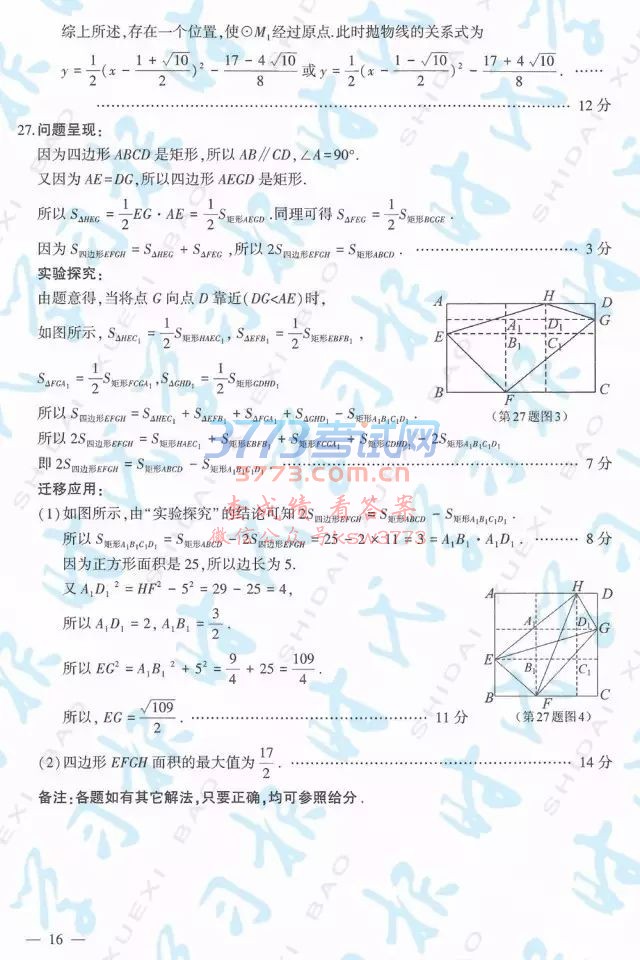 综上所述,存在一个位置,使⊙M₁经过原点.此时抛物线的关系式为
y = 1/2(x - (1+√10)/2)² - (17-4√10)/8 或 y = 1/2(x - (1-√10)/2)² - (17+4√10)/8. ……
…………………… 12 分
27.问题呈现:
因为四边形 ABCD 是矩形,所以 AB∥CD,∠A=90°.
又因为 AE=DG,所以四边形 AEGD 是矩形.
所以 S△HEG = 1/2 EG·AE = 1/2 S矩形AEGD .同理可得 S△FEG = 1/2 S矩形BCGE .
因为 S四边形EFGH = S△HEG + S△FEG ,所以 2S四边形EFGH = S矩形ABCD . …………………… 3 分
实验探究:
由题意得,当将点 G 向点 D 靠近(DG<AE)时,
如图所示, S△HEC₁ = 1/2 S矩形HAEC₁ , S△EFB₁ = 1/2 S矩形EBFB₁ ,
S△FGA₁ = 1/2 S矩形FCGA₁ , S△GHD₁ = 1/2 S矩形GDHD₁
所以 S四边形EFGH = S△HEC₁ + S△EFB₁ + S△FGA₁ + S△GHD₁ - S矩形A₁B₁C₁D₁ .
所以 2S四边形EFGH = S矩形HAEC₁ + S矩形EBFB₁ + S矩形FCGA₁ + S矩形GDHD₁ - 2S矩形A₁B₁C₁D₁
即 2S四边形EFGH = S矩形ABCD - S矩形A₁B₁C₁D₁ . …………………… 7 分
A H D
A₁ D₁ G
E B₁ C₁
B F C
(第27题图3)
迁移应用:
(1)如图所示,由“实验探究”的结论可知 2S四边形EFGH = S矩形ABCD - S矩形A₁B₁C₁D₁ .
所以 S矩形A₁B₁C₁D₁ = S矩形ABCD - 2S四边形EFGH = 25 - 2×11 = 3 = A₁B₁·A₁D₁ . ……… 8 分
因为正方形面积是 25,所以边长为 5.
又 A₁D₁² = HF² - 5² = 29 - 25 = 4,
所以 A₁D₁ = 2, A₁B₁ = 3/2 .
所以 EG² = A₁B₁² + 5² = 9/4 + 25 = 109/4 .
所以, EG = √109/2 . …………………… 11 分
A H D
A₁ D₁ G
E B₁ C₁
B F C
(第27题图4)
(2)四边形 EFGH 面积的最大值为 17/2 . …………………… 14 分
备注:各题如有其它解法,只要正确,均可参照给分.
— 16 —
3773考试网
3773.com.cn
查成绩 看答案
微信公众号:xsw3773
学习报
SHIDAI XUEXI BAO